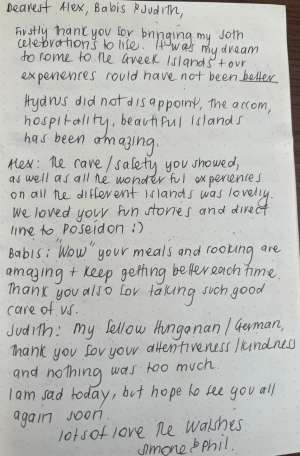 Dearest Alex, Babis & Judith,
Firstly thank you for bringing my 50th
celebrations to life. It was my dream
to come to the Greek Islands & our
experiences could have not been better
Hydrus did not disappoint, the accom,
hospitality, beautiful islands
has been amazing.
Alex: The care/safety you showed,
as well as all the wonderful experiences
on all the different islands was lovely.
We loved your fun stories and direct
line to Poseidon :)
Babis: "Wow" your meals and cooking are
amazing + keep getting better each time.
Thank you also for taking such good
care of us.
Judith: My fellow Hungarian/German,
thank you for your attentiveness/kindness
and nothing was too much.
I am sad today, but hope to see you all
again soon.
lots of love the Walshes
Simone & Phil.